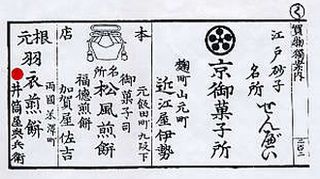 買物獨案内
江戸砂子
名所
せんべい
京御菓子所
麹町山元町
近江屋伊勢
本
店
元飯田町九段下
御菓子司
名所
松風煎餅
福徳煎餅
加賀屋佐吉
根元
羽衣煎餅
両國米澤町
井筒屋與兵衛